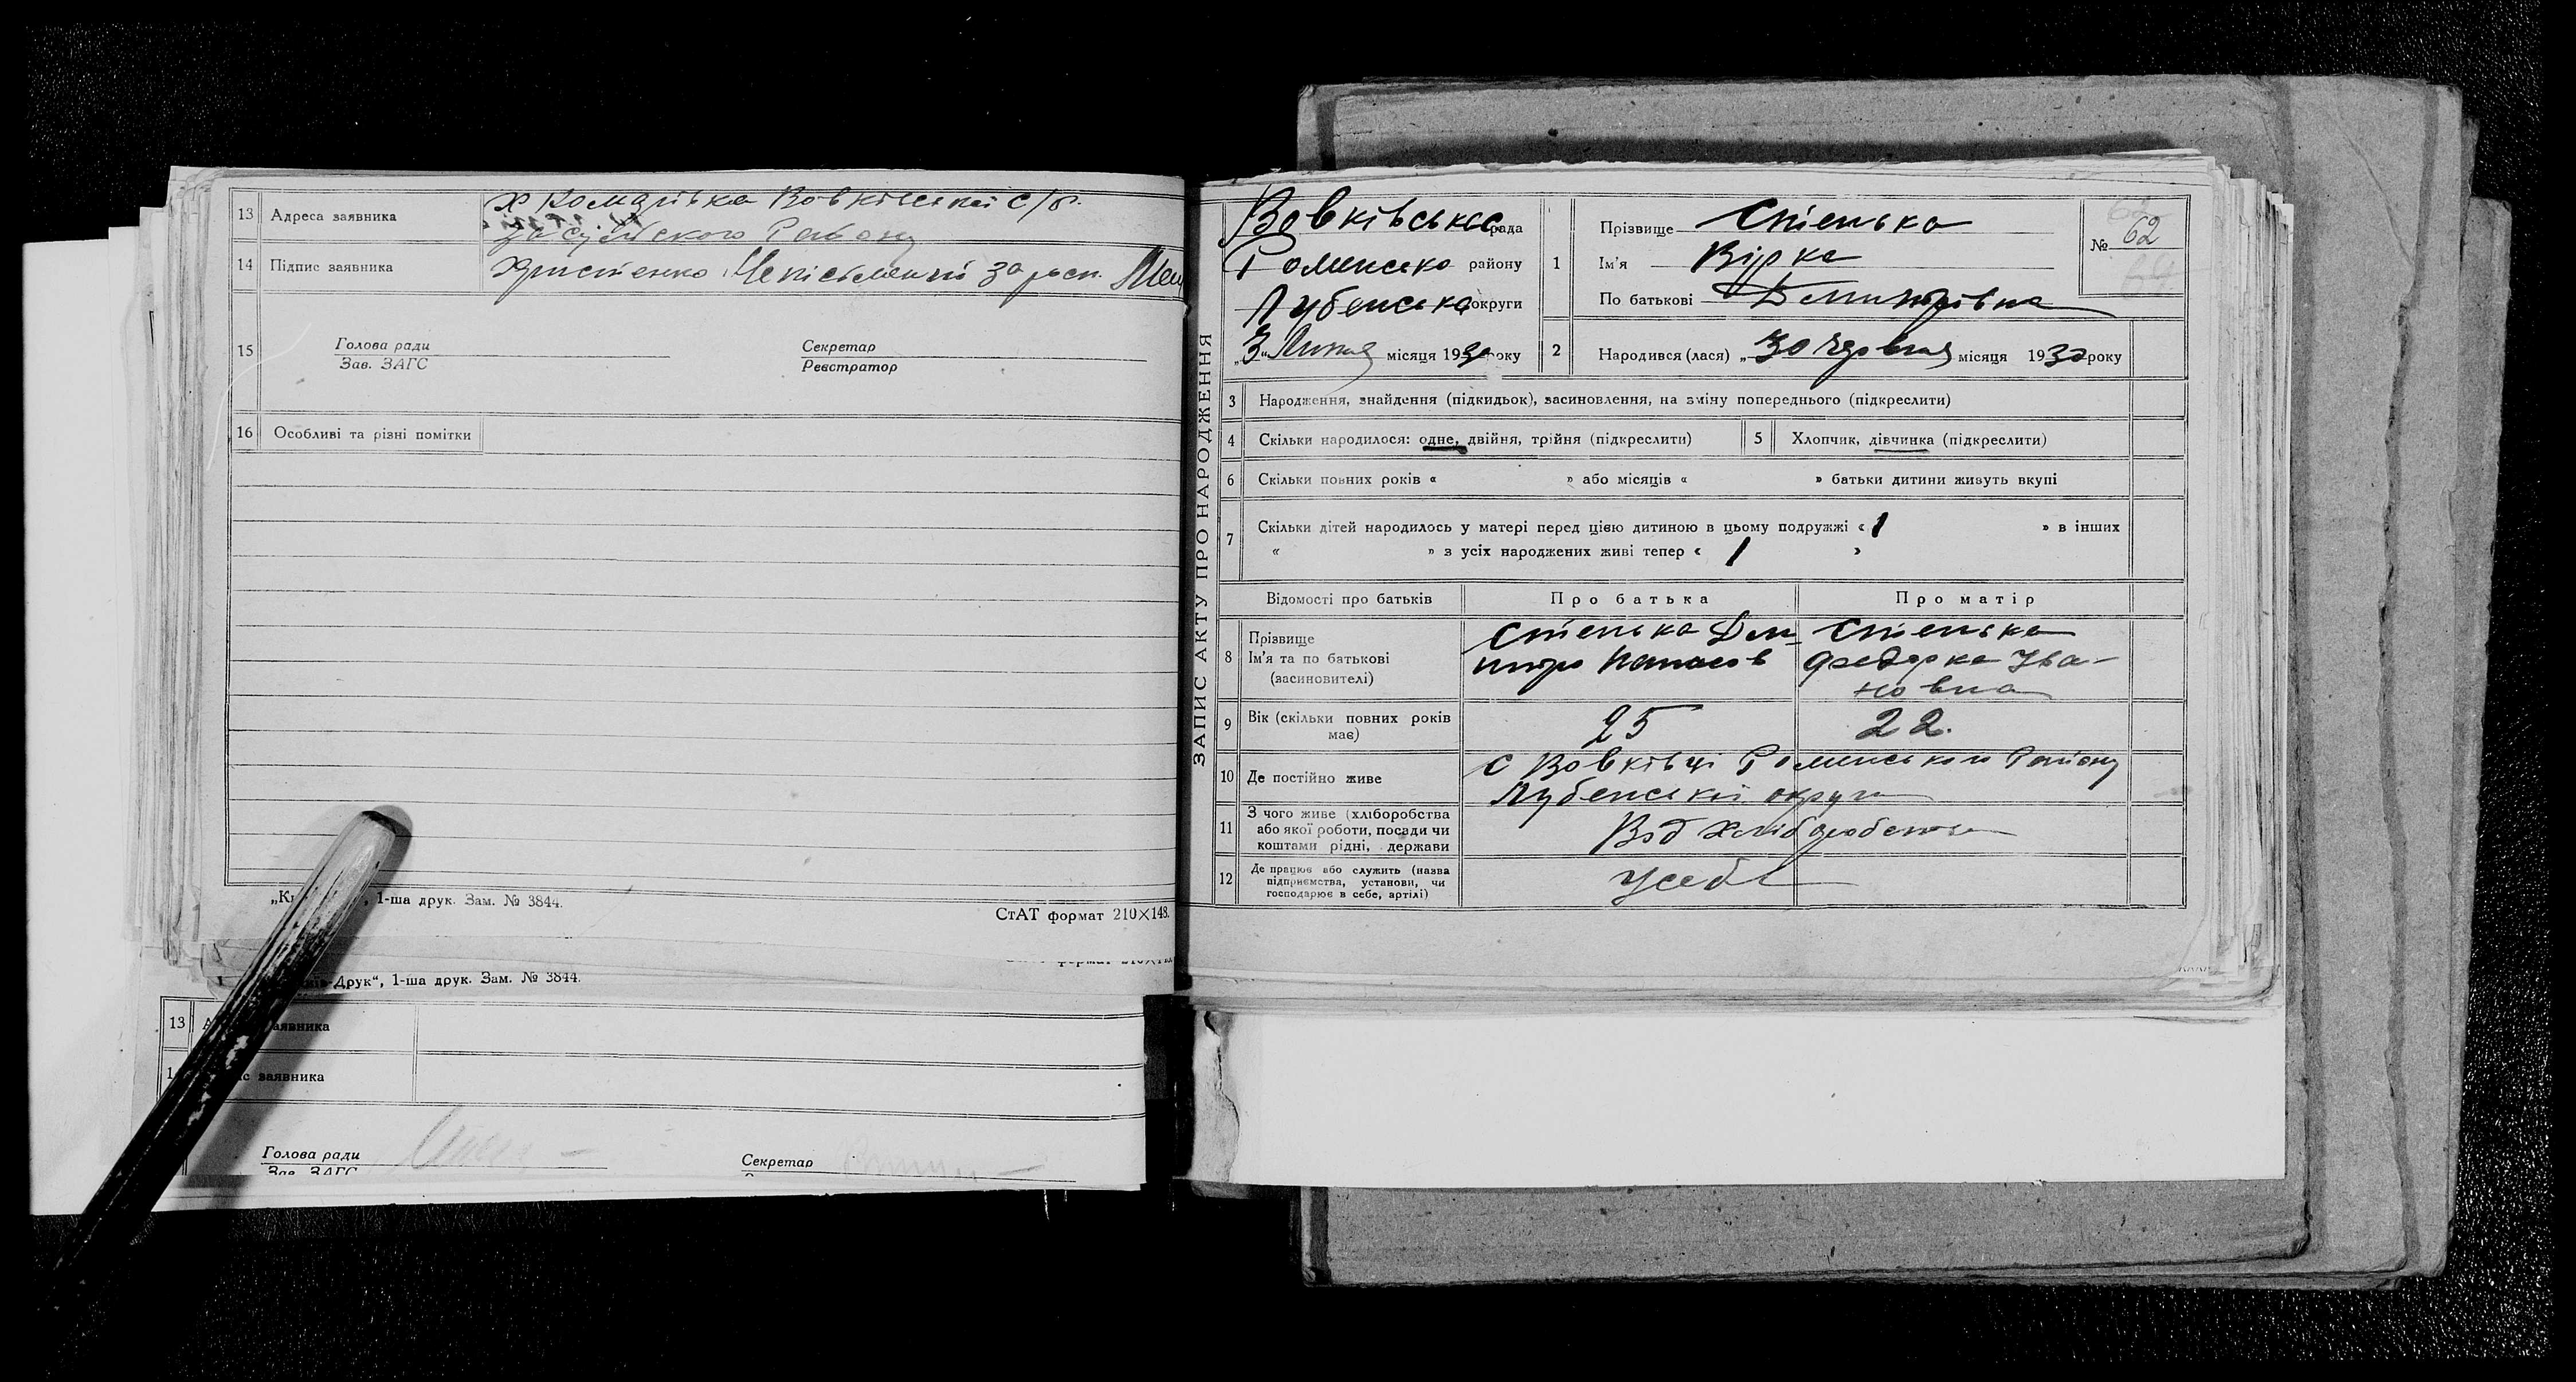 13 Адреса заявника Х Комарівка Вовківської с/р.
Засульского Району
14 Підпис заявника Христенко Неписьменний за росп.
15 Голова ради Секретар
Зав. ЗАГС Реєстратор
16 Особливі та різні помітки
1-ша друк. Зам. № 3844.
СтАТ формат 210×148.
Друк“, 1-ша друк. Зам. № 3844.
13 аявника
заявника
Голова ради Секретар
Зав. ЗАГС
ЗАПИС АКТУ ПРО НАРОДЖЕННЯ
Вовківська рада
Роменсько району
Лубенська округи
„3“ Липня місяця 1930 року
1 Прізвище Стенька
Ім'я Вірка
По батькові Дмитрівна
№ 62
64
2 Народився (лася) „30 червня місяця 1930 року
3 Народження, знайдення (підкидьок), засиновлення, на зміну попереднього (підкреслити)
4 Скільки народилося: одне, двійня, трійня (підкреслити) 5 Хлопчик, дівчинка (підкреслити)
6 Скільки повних років « » або місяців « » батьки дитини живуть вкупі
7 Скільки дітей народилось у матері перед цією дитиною в цьому подружжі « 1 » в інших
« » з усіх народжених живі тепер « 1 »
Відомості про батьків Про батька Про матір
8 Прізвище
Ім'я та по батькові
(засиновителі)
Стенька Дми
тро Панасов
Стенька
Федорка Іва-
новна
9 Вік (скільки повних років
має)
25 22.
10 Де постійно живе С Вовківці Роменського Району
Лубенської округи
11 З чого живе (хліборобства
або якої роботи, посади чи
коштами рідні, держави
Від Хліборобства
12 Де працює або служить (назва
підприємства, установи, чи
господарює в себе, артілі)
Усебе